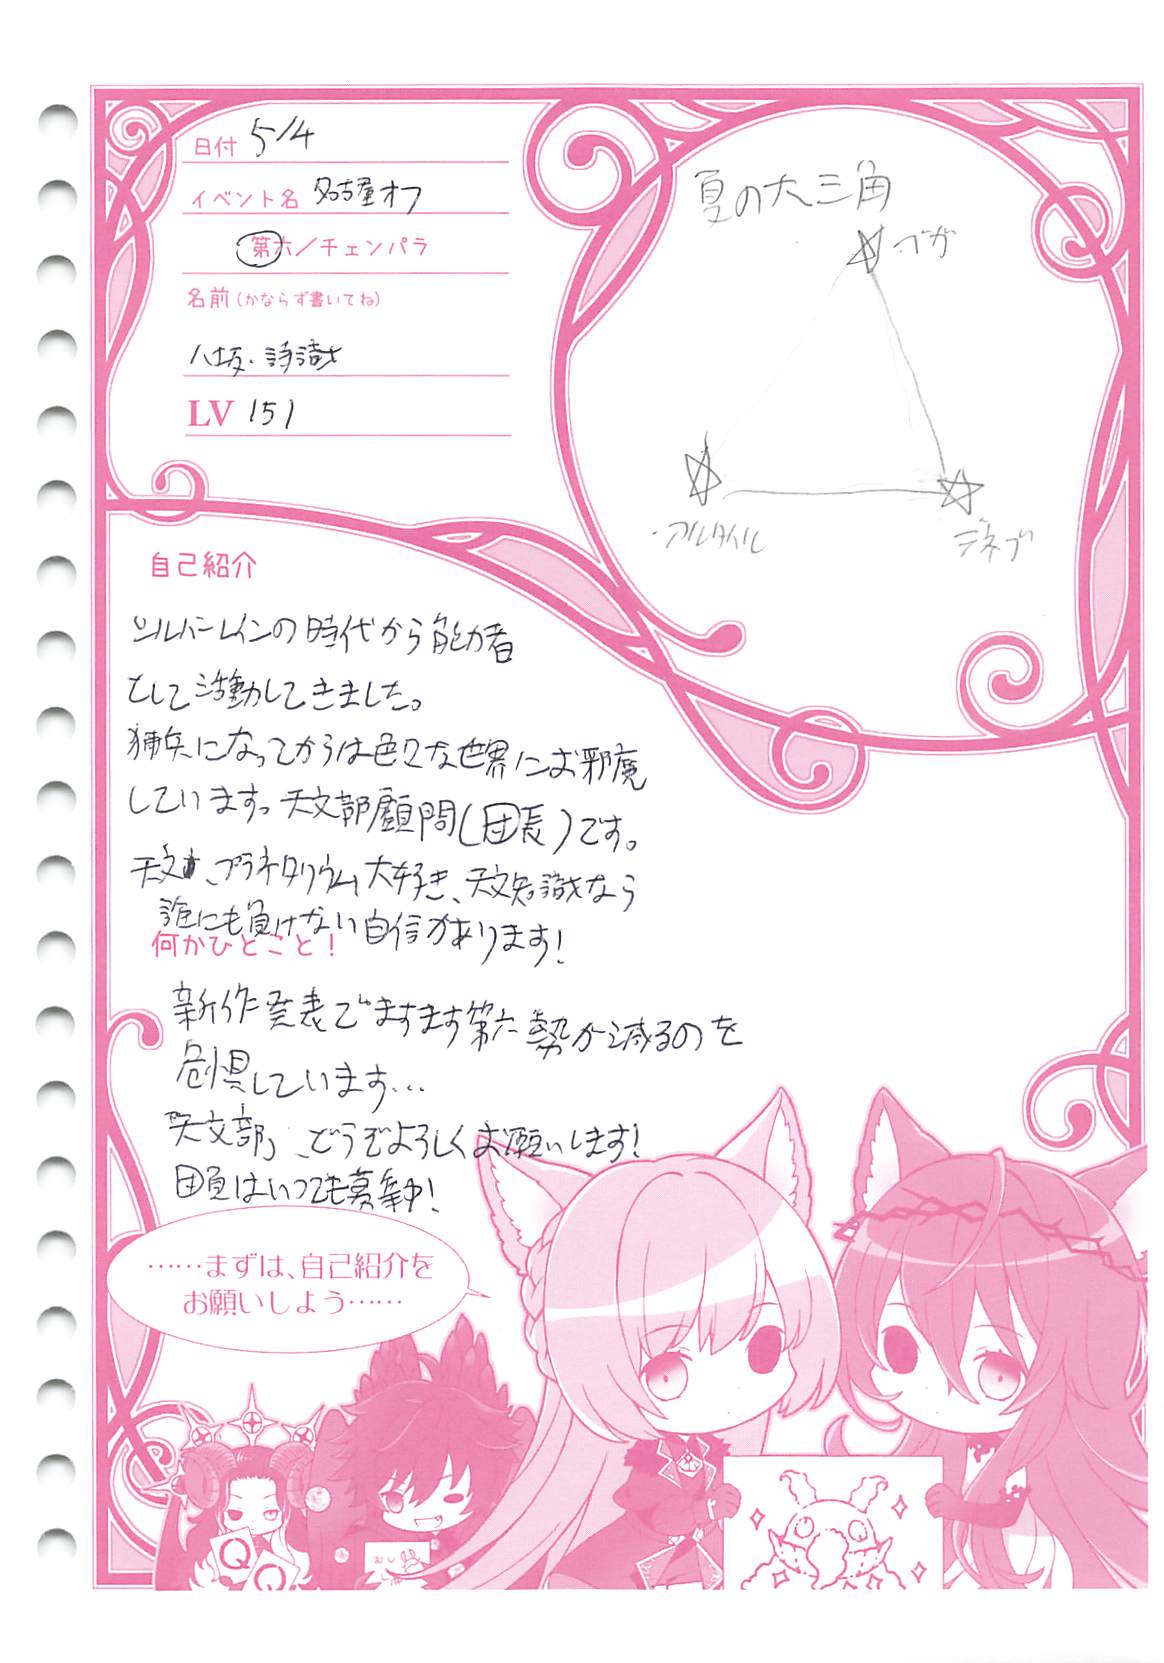 日付 5/4
イベント名 名古屋オフ
第六／チェンパラ
名前(かならず書いてね)
八坂・詩織
LV 151
夏の大三角
ベガ
アルタイル
デネブ
自己紹介
シルバーレインの時代から能力者
として活動してきました。
猟兵になってからは色々な世界にお邪魔
しています。天文部顧問(団長)です。
天文、プラネタリウム大好き、天文知識なら
誰にも負けない自信があります!
何かひとこと!
新作発表でますます第六勢が減るのを
危惧しています…
『天文部』、どうぞよろしくお願いします!
団員はいつでも募集中!
……まずは、自己紹介を
お願いしよう……
Q
Q